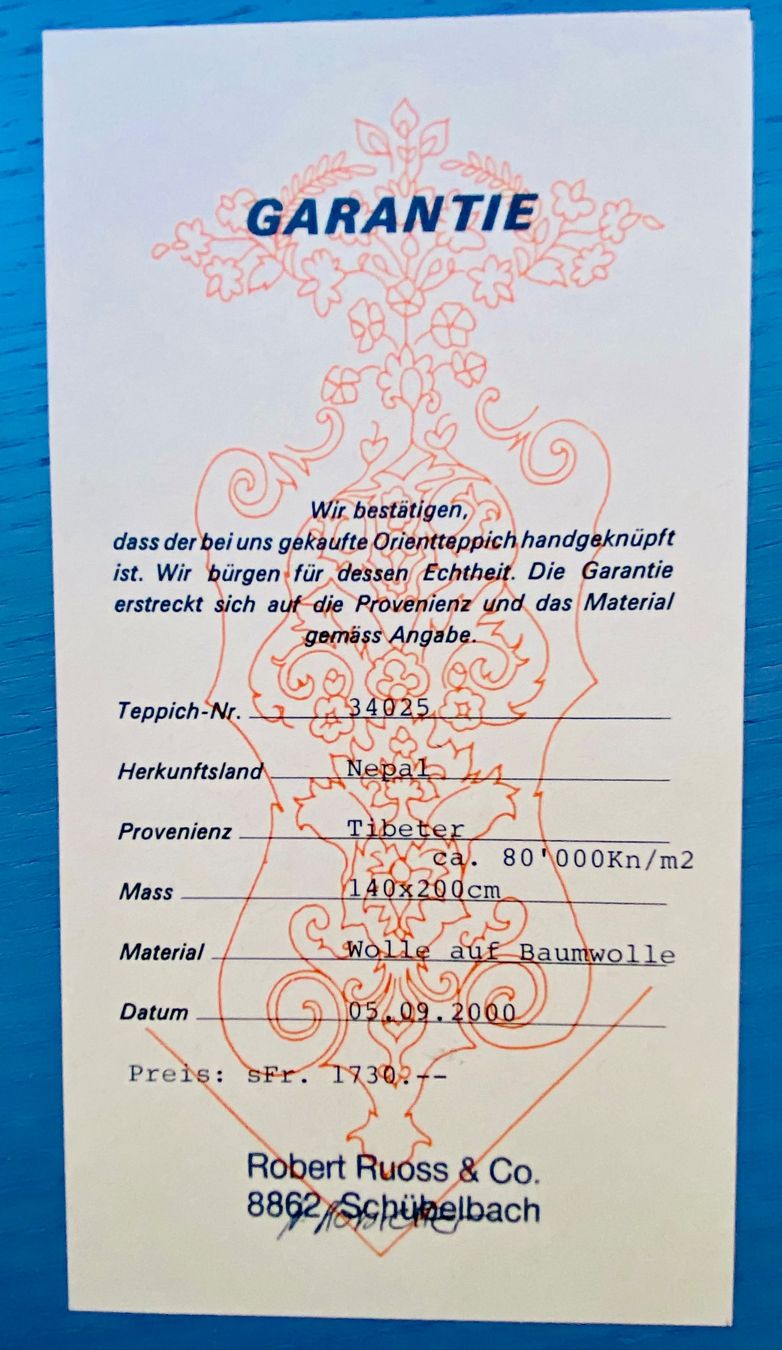 GARANTIE
Wir bestätigen,
dass der bei uns gekaufte Orientteppich handgeknüpft
ist. Wir bürgen für dessen Echtheit. Die Garantie
erstreckt sich auf die Provenienz und das Material
gemäss Angabe.
Teppich-Nr. 34025
Herkunftsland Nepal
Provenienz Tibeter
ca. 80'000Kn/m2
Mass 140x200cm
Material Wolle auf Baumwolle
Datum 05.09.2000
Preis: sFr. 1730.--
Robert Ruoss & Co.
8862 Schübelbach